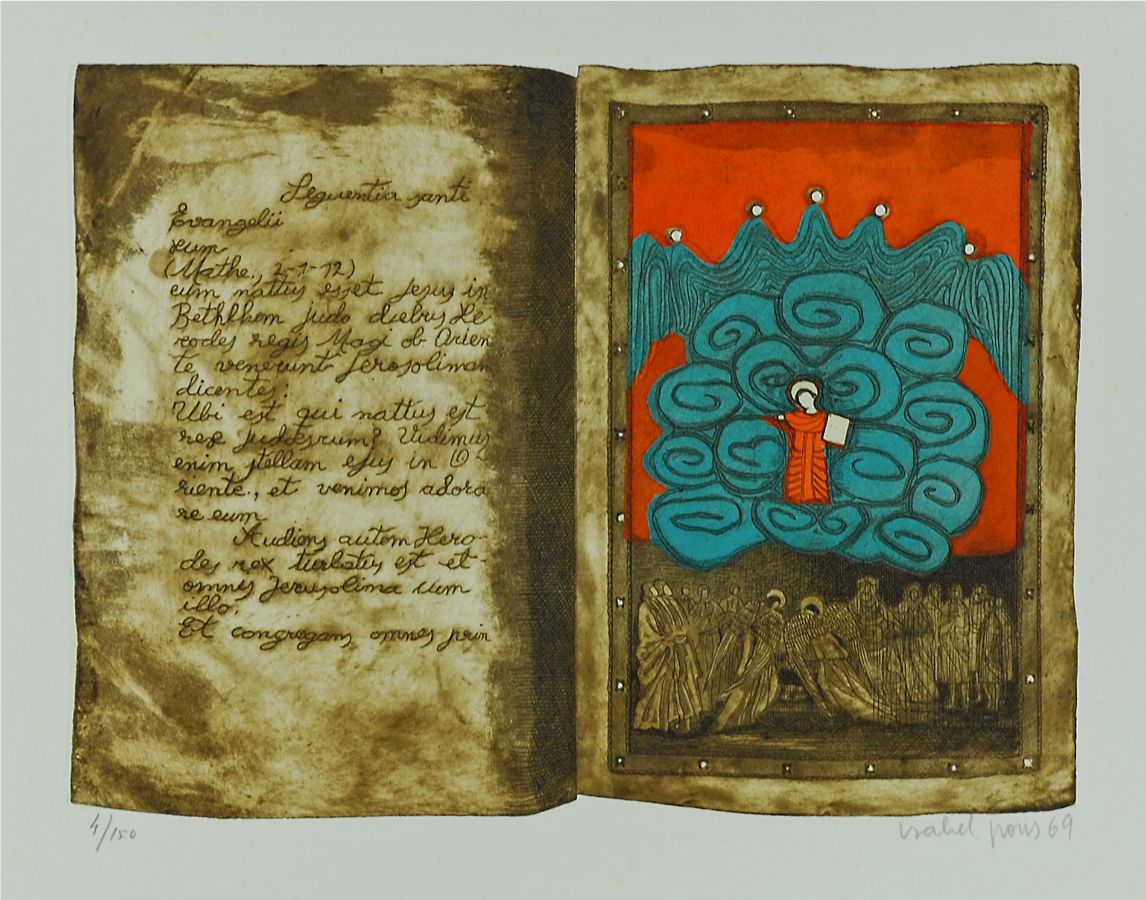 Sequentia santi
Evangelii
eum
(Mathe., 2-1-12)
eum nattus esset Jesus in
Bethlhem judo diebus He
rodes regis Magi ob Orien
te venerunt Jerosoliman
dicentes:
Ubi est qui nattus est
rex Judæsrum? Vidimus
enim stellam ejus in O-
riente., et venimos adora
re eum
Audiens autem Hero-
des rex turbatus est et-
omnes Jerusolima cum
illo.
Et congregans omnes prin
4/150
isabel pons 69